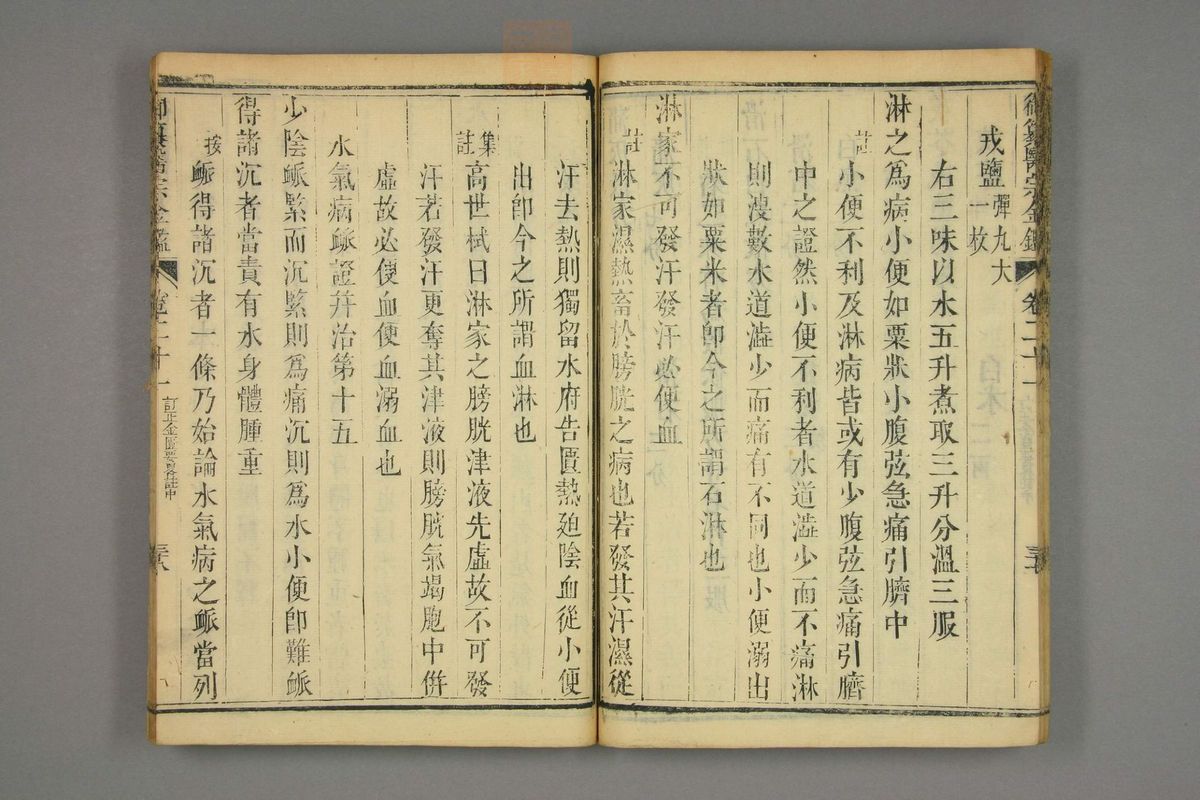 御纂醫宗金鑑 卷二十一
戎鹽彈丸大一枚
右三味以水五升煮取三升分溫三服
淋之爲病小便如粟狀小腹弦急痛引臍中
註小便不利及淋病皆或有少腹弦急痛引臍
中之證然小便不利者水道澁少而不痛淋
則溲數水道澁少而痛有不同也小便溺出
狀如粟米者卽今之所謂石淋也
淋家不可發汗發汗必便血
註淋家濕熱畜於膀胱之病也若發其汗濕從
汗去熱則獨留水府告匱熱廹陰血從小便
出卽今之所謂血淋也
集註高世栻曰淋家之膀胱津液先虛故不可發
汗若發汗更奪其津液則膀胱氣竭胞中併
虛故必便血便血溺血也
水氣病脈證并治第十五
少陰脈緊而沉緊則爲痛沉則爲水小便卽難脈
得諸沉者當責有水身體腫重
按脈得諸沉者一條乃始論水氣病之脈當列
御纂醫宗金鑑 卷二十一 訂正金匱要畧註中